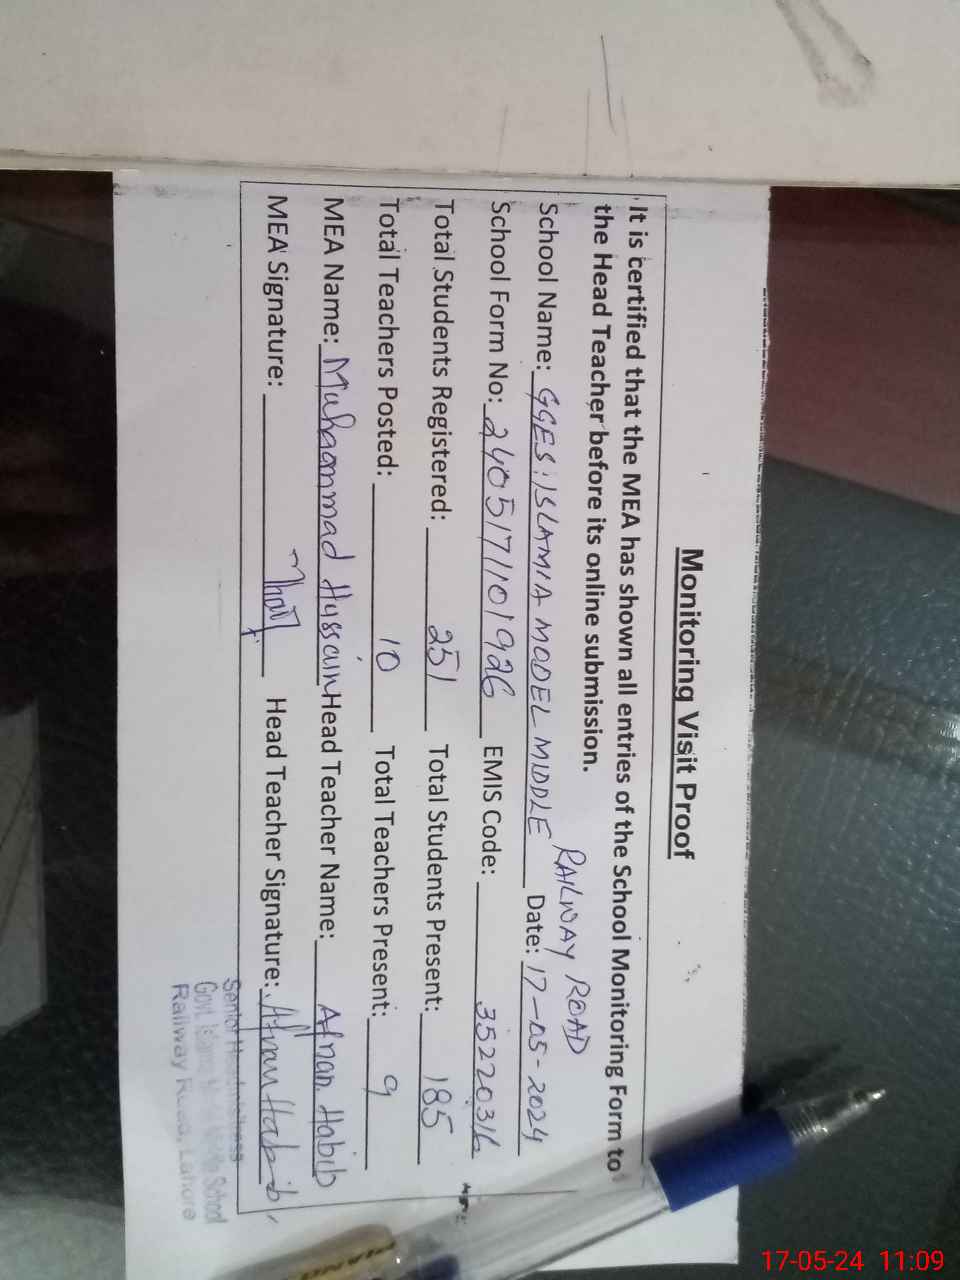 Monitoring Visit Proof
It is certified that the MEA has shown all entries of the School Monitoring Form to
the Head Teacher before its online submission.
RAILWAY ROAD
School Name: GGES: ISLAMIA MODEL MIDDLE Date: 17-05-2024
School Form No: 2405171101926 EMIS Code: 35220316
Total Students Registered: 251 Total Students Present: 185
Total Teachers Posted: 10 Total Teachers Present: 9
MEA Name: Muhammad Hussain Head Teacher Name: Afnan. Habib
MEA Signature: Head Teacher Signature: Afnan Habib
Senior Headmistress
Govt. School
Railway Road, Lahore
PIANO
17-05-24 11:09